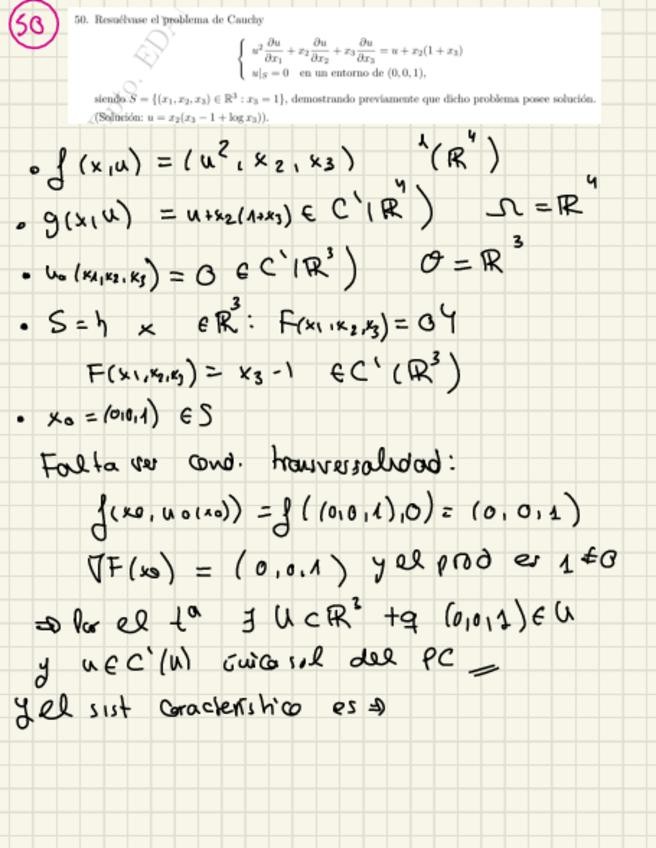 50
50. Resuélvase el problema de Cauchy
{ u² ∂u/∂x₁ + x₂ ∂u/∂x₂ + x₃ ∂u/∂x₃ = u + x₂(1 + x₃)
u|S = 0 en un entorno de (0, 0, 1),
siendo S = {(x₁, x₂, x₃) ∈ ℝ³ : x₃ = 1}, demostrando previamente que dicho problema posee solución.
(Solución: u = x₂(x₃ − 1 + log x₃)).
• f(x,u) = (u², x₂, x₃) ¹(ℝ⁴)
• g(x,u) = u+x₂(1+x₃) ∈ C¹(ℝ⁴) Ω = ℝ⁴
• u₀(x₁,x₂,x₃) = 0 ∈ C¹(ℝ³) O = ℝ³
• S = { x ∈ ℝ³ : F(x₁,x₂,x₃) = 0}
F(x₁,x₂,x₃) = x₃ - 1 ∈ C¹(ℝ³)
• x₀ = (0,0,1) ∈ S
Falta ver cond. transversalidad:
f(x₀, u₀(x₀)) = f((0,0,1),0) = (0,0,1)
∇F(x₀) = (0,0,1) y el prod es 1 ≠ 0
⇒ Por el tª ∃ U ⊂ ℝ³ tq (0,0,1) ∈ U
y u ∈ C¹(U) única sol del PC
y el sist característico es ⇒